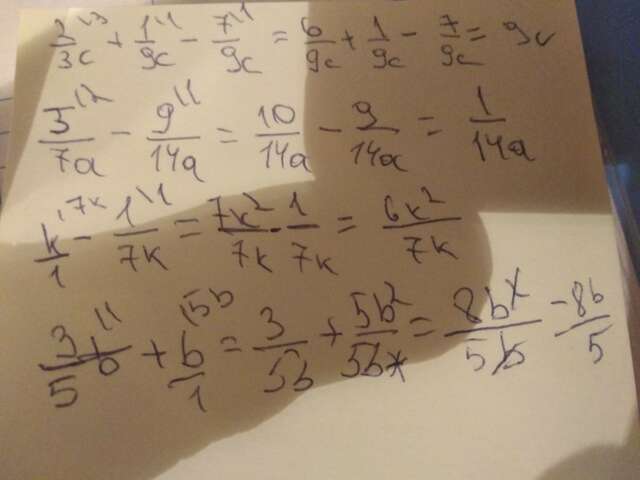 2/3c ⁽³ + 1/9c ⁽¹ - 7/9c ⁽¹ = 6/9c + 1/9c - 7/9c = 9c
5/7a ⁽² - 9/14a ⁽¹ = 10/14a - 9/14a = 1/14a
k/1 ⁽⁷ᵏ - 1/7k ⁽¹ = 7k²/7k - 1/7k = 6k²/7k
3/5b ⁽¹ + b/1 ⁽⁵ᵇ = 3/5b + 5b²/5b = 8b²/5b - 8b/5